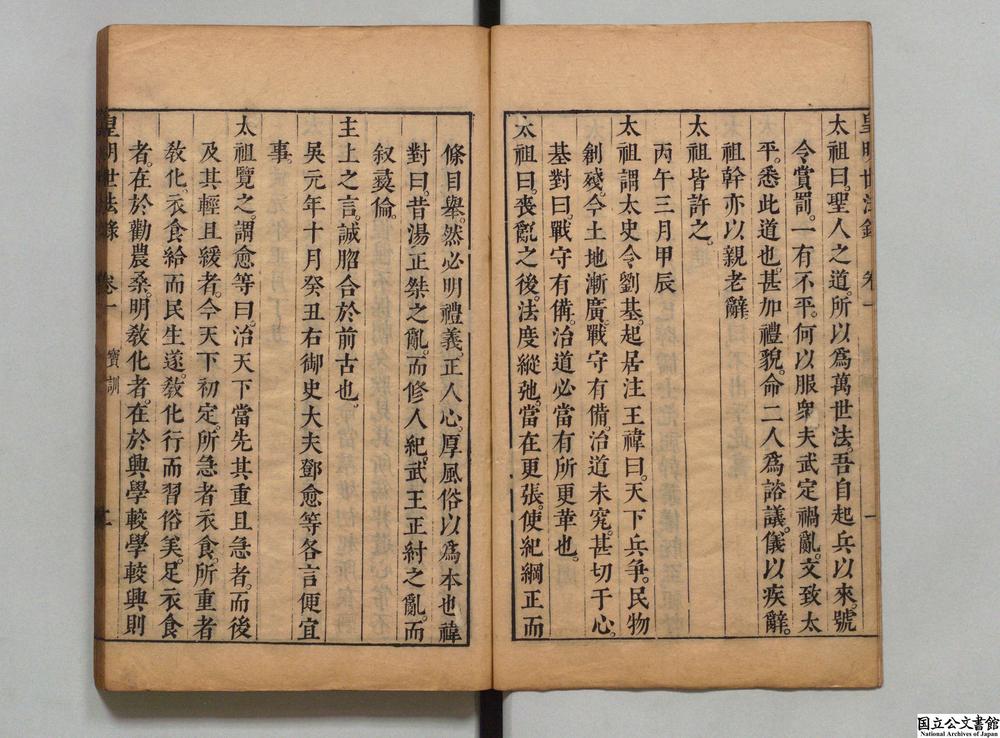 皇明世法錄 卷一 一
太祖曰。聖人之道。所以爲萬世法。吾自起兵以來。號
令賞罰。一有不平。何以服衆。夫武定禍亂。文致太
平。悉此道也。甚加禮貌。命二人爲諮議。儀以疾辭。
祖幹亦以親老辭。
太祖皆許之。
丙午三月甲辰
太祖謂太史令劉基。起居注王禕曰。天下兵爭。民物
創殘。今土地漸廣。戰守有備。治道未究。甚切于心。
基對曰。戰守有備。治道必當有所更革也。
太祖曰。喪亂之後。法度縱弛。當在更張。使紀綱正而
條目舉。然必明禮義。正人心。厚風俗以爲本也禕
對曰。昔湯正桀之亂。而修人紀。武王正紂之亂。而
叙彞倫。
主上之言。誠脗合於前古也。
吳元年十月癸丑右御史大夫鄧愈等各言便宜
事。
太祖覽之。謂愈等曰。治天下當先其重且急者。而後
及其輕且緩者。今天下初定。所急者衣食。所重者
敎化。衣食給而民生遂。敎化行而習俗美。足衣食
者。在於勸農桑。明敎化者。在於興學較。學較興則
皇明世法錄 卷一 寶訓 二
国立公文書館
National Archives of Japan